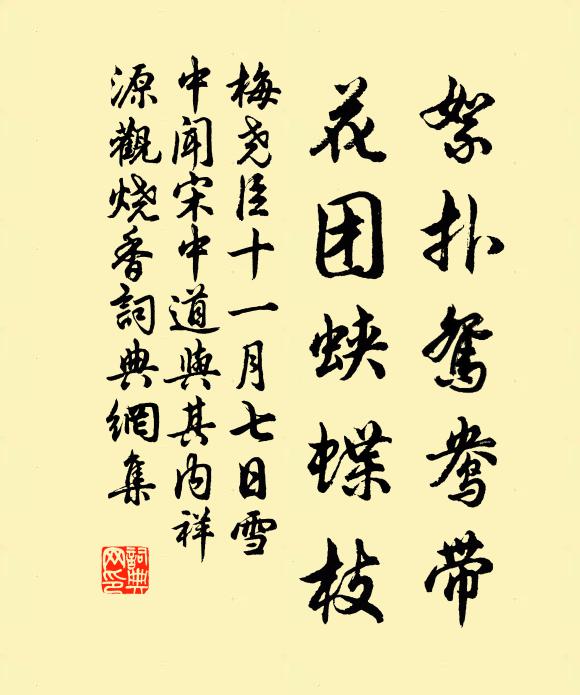 絮扑鸳鸯带
花团蛱蝶枝
梅尧臣十一月七日雪
中闻宋中道與其内祥
源觀烧香詞典網集
詞典
网印